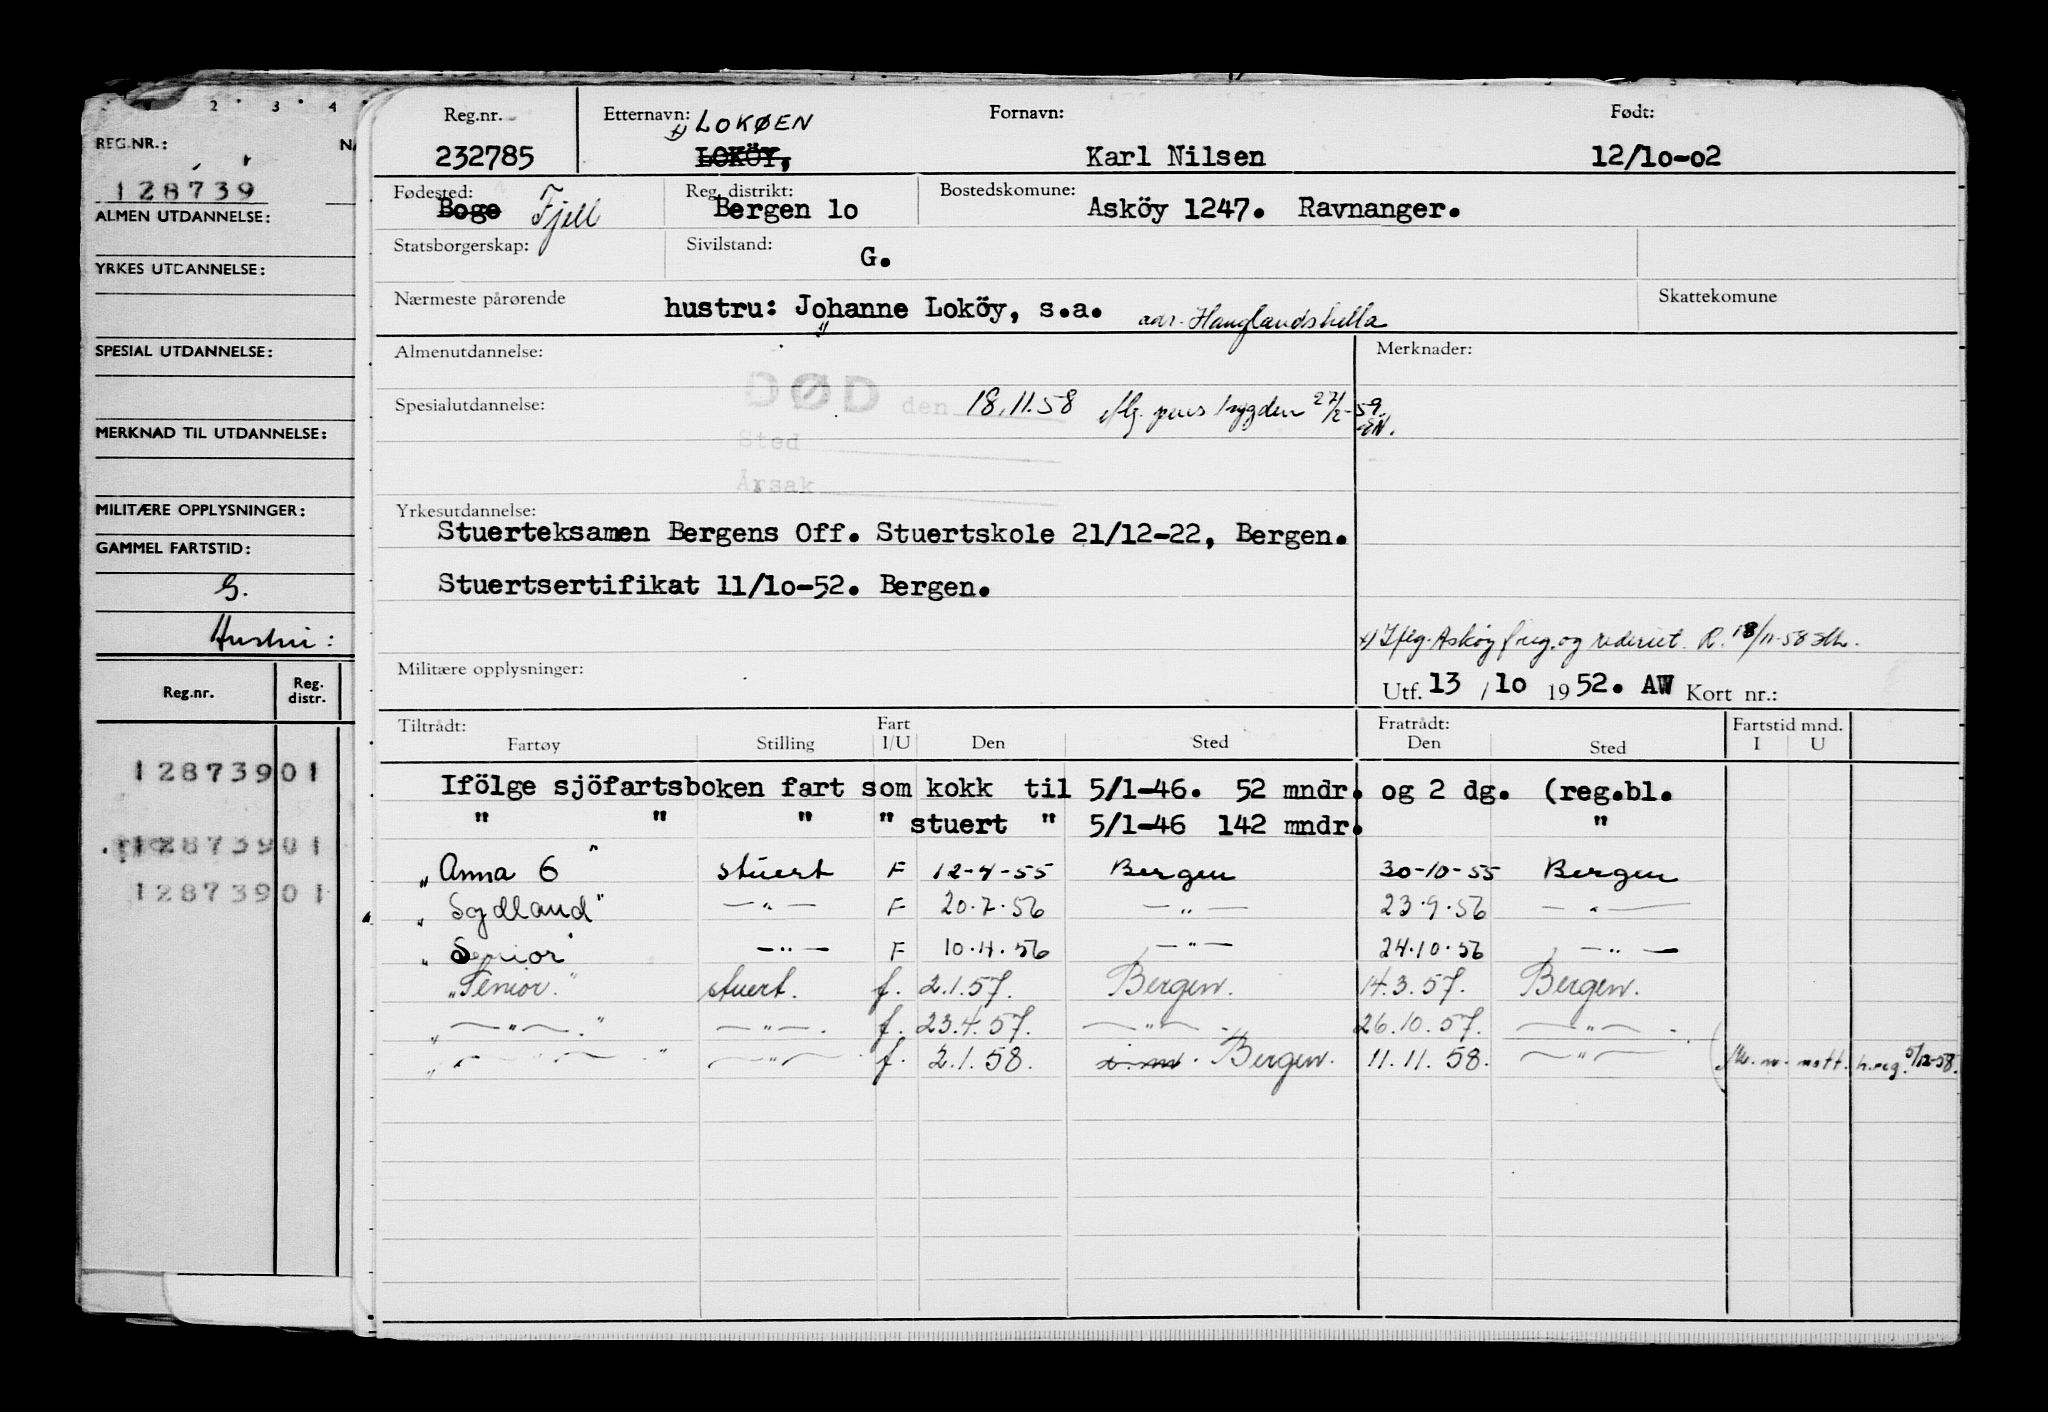 2 3 4
REG.NR.:
128739
ALMEN UTDANNELSE:
YRKES UTDANNELSE:
SPESIAL UTDANNELSE:
MERKNAD TIL UTDANNELSE:
MILITÆRE OPPLYSNINGER:
GAMMEL FARTSTID:
G.
Hustru:
Reg.nr. Reg. distr.
128739 01
128739 01
128739 01
Reg.nr. Etternavn: Fornavn: Født:
x) LOKØEN
232785 LOKÖY, Karl Nilsen 12/10-02
Fødested: Reg. distrikt: Bostedskomune:
Boge Fjell Bergen 10 Asköy 1247. Ravnanger.
Statsborgerskap: Sivilstand: G.
Nærmeste pårørende hustru: Johanne Loköy, s.a. adr. Hauglandshella Skattekomune
Almenutdannelse: Merknader:
DØD den 18.11.58 pens trygden 27/2-59.
Spesialutdannelse: EN.
Sted
Årsak
Yrkesutdannelse:
Stuerteksamen Bergens Off. Stuertskole 21/12-22, Bergen.
Stuertsertifikat 11/10-52. Bergen.
x) Ifig. Askøy freg. og rederiet. R. 18/11-58
Militære opplysninger: Utf. 13/10 1952. AW Kort nr.:
Tiltrådt: Fart Fratrådt: Fartstid mnd.
Fartøy Stilling I/U Den Sted Den Sted I U
Ifölge sjöfartsboken fart som kokk til 5/1-46. 52 mndr. og 2 dg. (reg.bl.
" " " " stuert " 5/1-46 142 mndr. "
"Anna 6" stuert F 12-4-55 Bergen 30-10-55 Bergen
"Sydland" —"— F 20.7.56 —"— 23.9.56 —"—
"Senior" —"— F 10.4.56 —"— 24.10.56 —"—
"Senior." stuert. f. 2.1.57. Bergen. 14.3.57. Bergen.
"—"—." —"—. f. 23.4.57. —"— 26.10.57. —"—.
"—"—" —"—. f. 2.1.58. Bergen. 11.11.58. —"— mott. h.reg. 5/12-58.